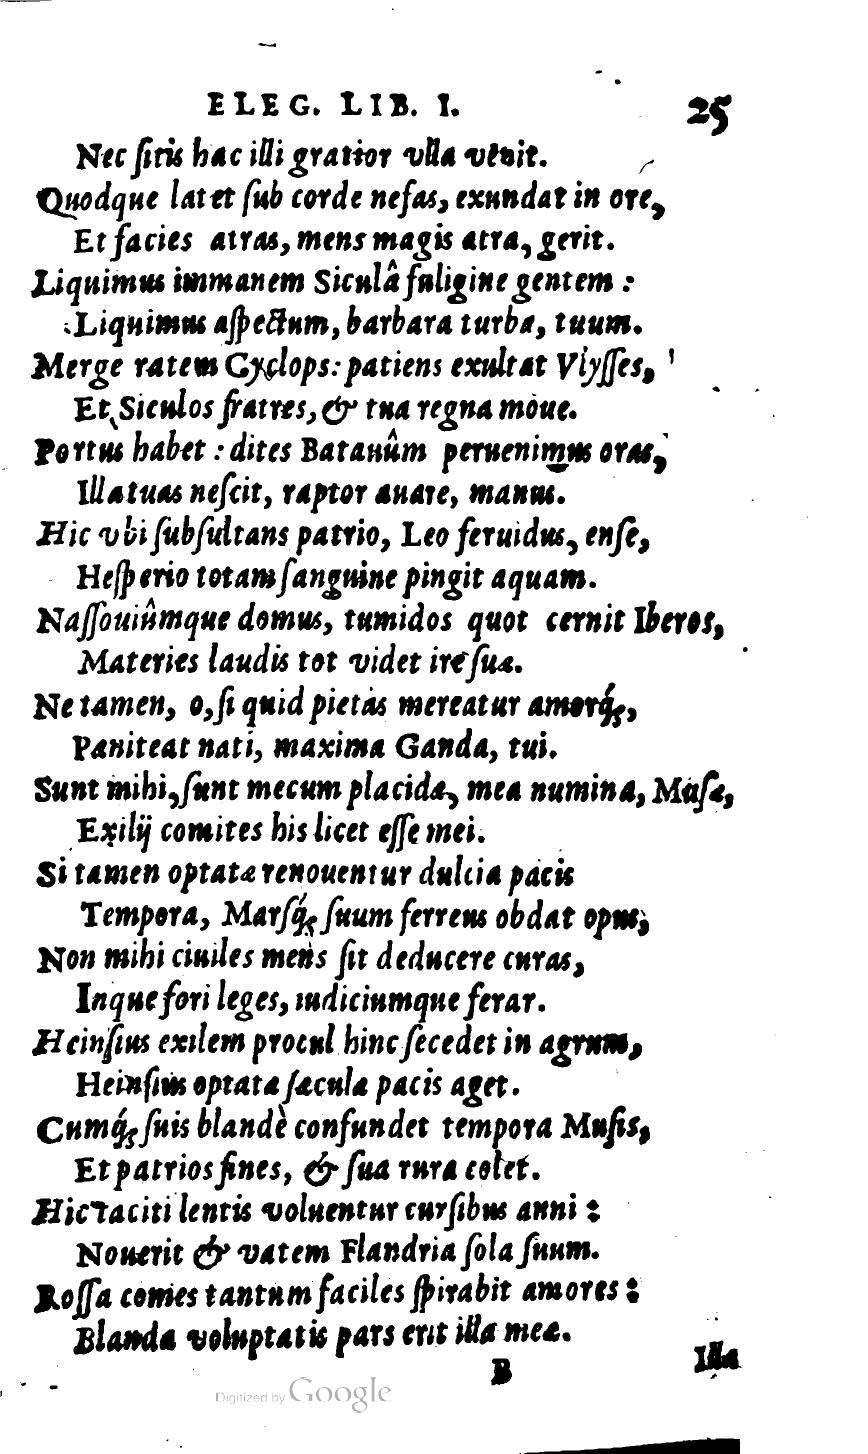 ELEG. LIB. I. 25
Nec ſitis hac illi gratior vlla venit.
Quodque latet ſub corde nefas, exundat in ore,
Et facies atras, mens magis atra, gerit.
Liquimus immanem Siculâ fuligine gentem :
Liquimus aſpectum, barbara turba, tuum.
Merge ratem Cyclops: patiens exultat Vlyſſes,
Et Siculos fratres, & tua regna moue.
Portus habet : dites Batauûm peruenimus oras,
Illa tuas neſcit, raptor auare, manus.
Hic vbi ſubſultans patrio, Leo feruidus, enſe,
Heſperio totam ſanguine pingit aquam.
Naſſouiûmque domus, tumidos quot cernit Iberos,
Materies laudis tot videt ire ſuæ.
Ne tamen, o, ſi quid pietas mereatur amorq́;,
Pæniteat nati, maxima Ganda, tui.
Sunt mihi, ſunt mecum placidæ, mea numina, Muſæ,
Exilij comites his licet eſſe mei.
Si tamen optatæ renouentur dulcia pacis
Tempora, Marſq́; ſuum ferreus obdat opus,
Non mihi ciuiles mens ſit deducere curas,
Inque fori leges, iudiciumque ferar.
Heinſius exilem procul hinc ſecedet in agrum,
Heinſius optata ſæcula pacis aget.
Cumq́; ſuis blandè confundet tempora Muſis,
Et patrios fines, & ſua rura colet.
Hic taciti lentis voluentur curſibus anni :
Nouerit & vatem Flandria ſola ſuum.
Roſſa comes tantum faciles ſpirabit amores :
Blanda voluptatis pars erit illa meæ.
B Illa
Digitized by Google